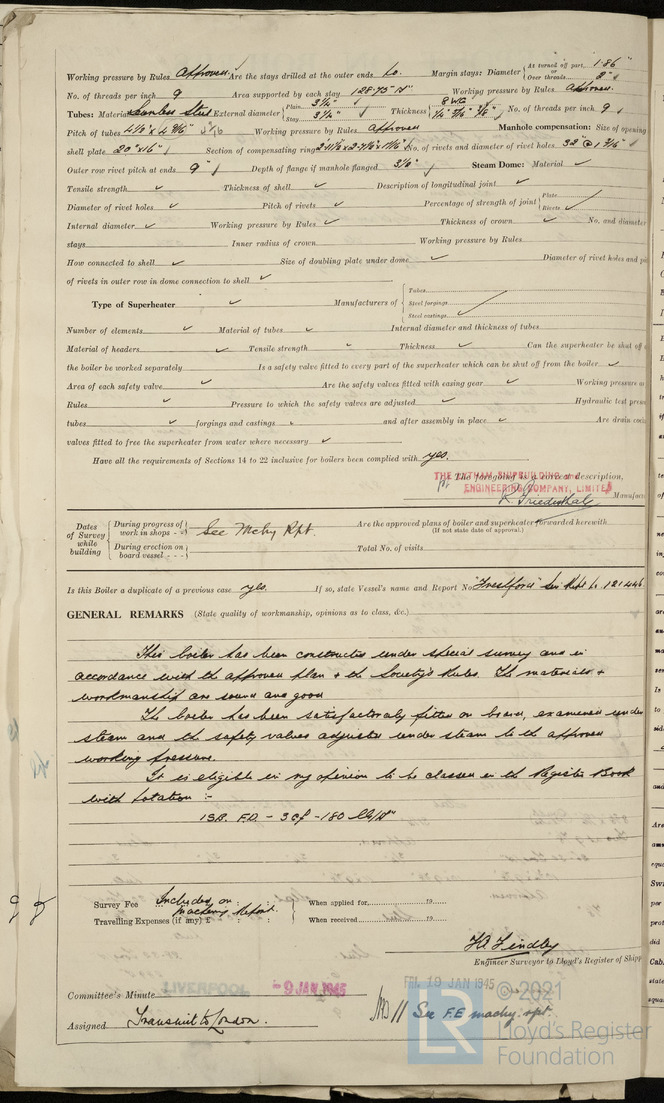 Working pressure by Rules Approved Are the stays drilled at the outer ends No. Margin stays: Diameter { At turned off part, 1·86" or Over threads 2"
No. of threads per inch 9 Area supported by each stay 128·75 □" Working pressure by Rules Approved.
Tubes: Material Seamless Steel External diameter { Plain 3¼" Stay 3¼" Thickness { 8 WG ¼" 5/16" 3/8" No. of threads per inch 9
Pitch of tubes Working pressure by Rules Approved Manhole compensation: Size of opening
shell plate 20" x 16" Section of compensating ring No. of rivets and diameter of rivet holes 32 @ 1 3/16"
Outer row rivet pitch at ends 9" Depth of flange if manhole flanged Steam Dome: Material ✓
Tensile strength ✓ Thickness of shell ✓ Description of longitudinal joint ✓
Diameter of rivet holes ✓ Pitch of rivets ✓ Percentage of strength of joint { Plate Rivets ✓
Internal diameter ✓ Working pressure by Rules ✓ Thickness of crown ✓ No. and diameter
stays Inner radius of crown Working pressure by Rules
How connected to shell ✓ Size of doubling plate under dome ✓ Diameter of rivet holes and pi
of rivets in outer row in dome connection to shell ✓
Type of Superheater ✓ Manufacturers of { Tubes Steel forgings Steel castings ✓
Number of elements ✓ Material of tubes ✓ Internal diameter and thickness of tubes
Material of headers ✓ Tensile strength ✓ Thickness ✓ Can the superheater be shut off
the boiler be worked separately Is a safety valve fitted to every part of the superheater which can be shut off from the boiler ✓
Area of each safety valve ✓ Are the safety valves fitted with easing gear ✓ Working pressure as
Rules ✓ Pressure to which the safety valves are adjusted ✓ Hydraulic test pres
tubes ✓ forgings and castings ✓ and after assembly in place ✓ Are drain coc
valves fitted to free the superheater from water where necessary ✓
Have all the requirements of Sections 14 to 22 inclusive for boilers been complied with yes.
The foregoing is a correct description,
THE LYTHAM SHIPBUILDING and
ENGINEERING COMPANY, LIMITED
Manufac
Dates of Survey while building { During progress of work in shops - - During erection on board vessel - - - } See Mchy Rpt.
Are the approved plans of boiler and superheater forwarded herewith
(If not state date of approval.)
Total No. of visits
Is this Boiler a duplicate of a previous case yes. If so, state Vessel's name and Report No.
GENERAL REMARKS (State quality of workmanship, opinions as to class, &c.)
This boiler has been constructed under special survey and in
accordance with the approved plan & the Society's Rules. The materials &
workmanship are sound and good
The boiler has been satisfactorily fitted on board, examined under
steam and the safety valves adjusted under steam to the approved
working pressure.
It is eligible in my opinion to be classed in the Register Book
with notation :-
1SB. FD - 3cf - 180 lb/□"
Survey Fee Included on
Travelling Expenses (if any) £ Machinery Report.
When applied for, 19
When received 19
Engineer Surveyor to Lloyd's Register of Shipp
LIVERPOOL
-9 JAN 1945
FRI. 19 JAN 1945
Committee's Minute
Assigned Transmit to London.
See F.E machy. rpt.
LR
© 2021
Lloyd's Register
Foundation